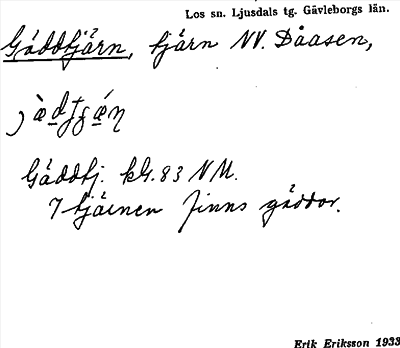 Los sn. Ljusdals tg. Gävleborgs län.
Gäddtjärn, tjärn NV. Dåasen,
Gäddtj. kbl. 83 NV.
I tjärnen finns gäddor.
Erik Eriksson 1933